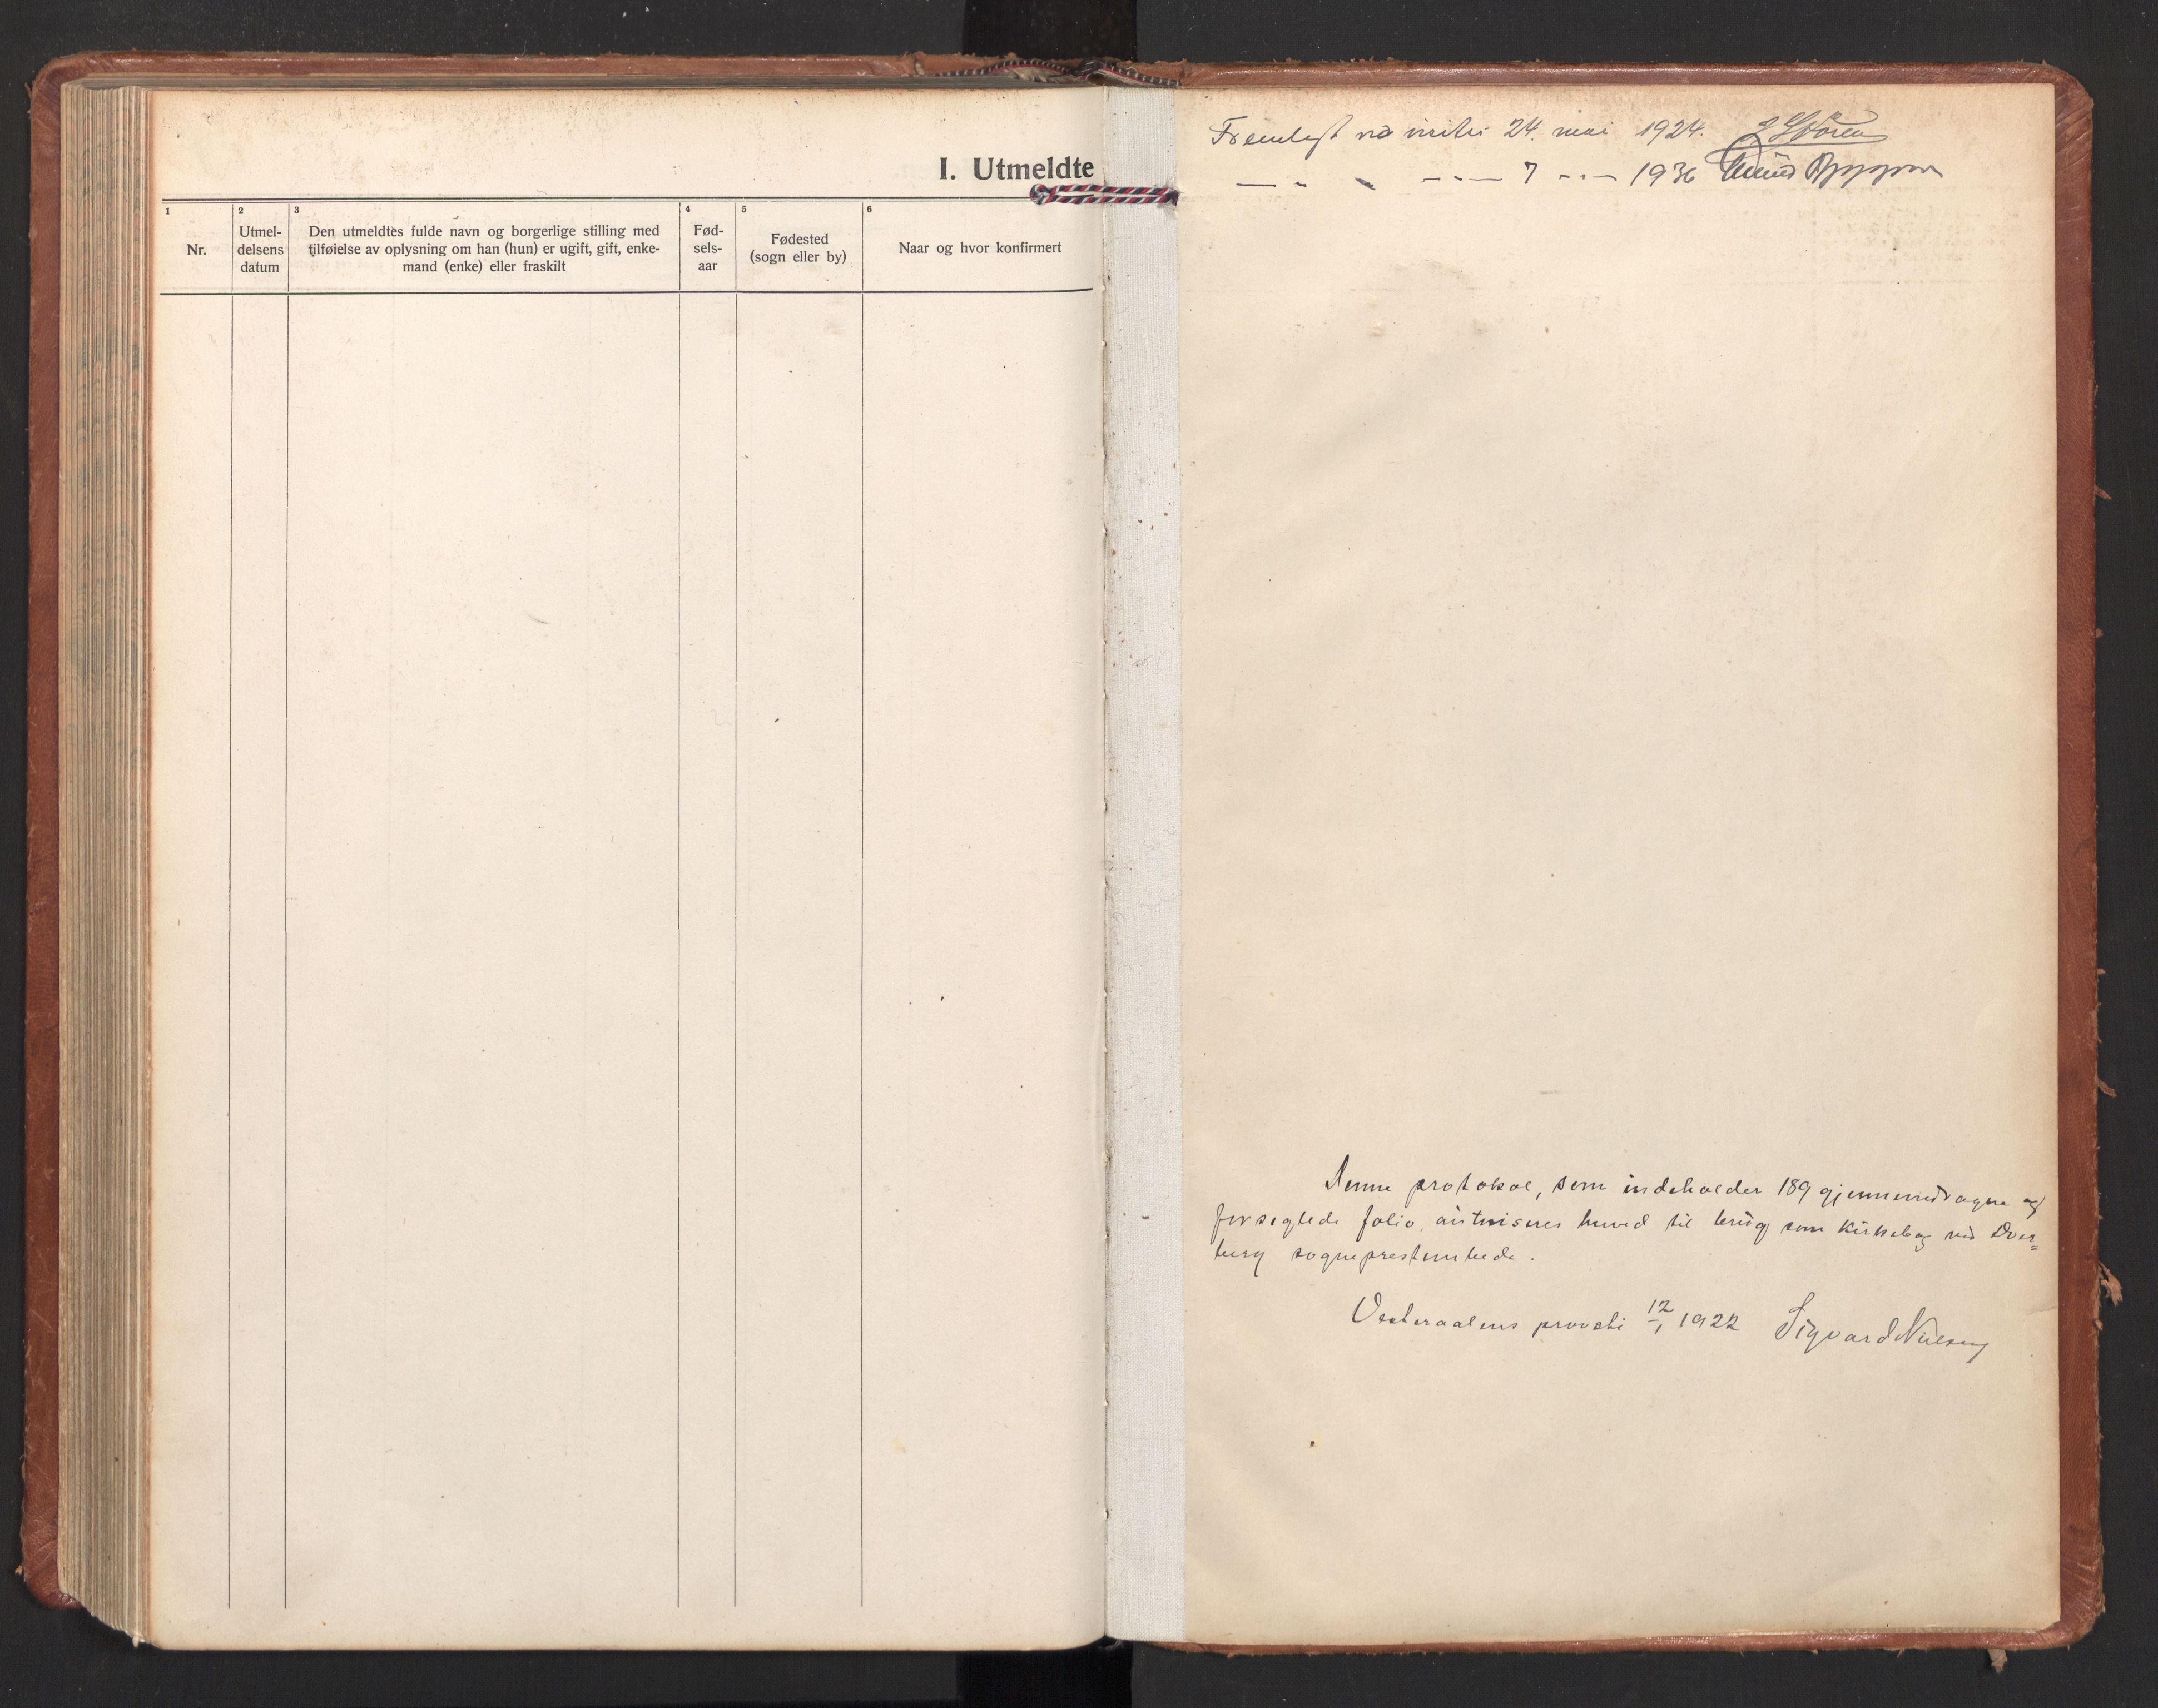 I. Utmeldte
1
Nr.
2
Utmel-
delsens
datum
3
Den utmeldtes fulde navn og borgerlige stilling med
tilføielse av oplysning om han (hun) er ugift, gift, enke-
mand (enke) eller fraskilt
4
Fød-
sels-
aar
5
Fødested
(sogn eller by)
6
Naar og hvor konfirmert
Fremlagt ved visitas 24. mai 1924. Støren
— - - --— 7 --— 1936
Denne protokol, som indeholder 189 gjennemdragne og
forseglede folio, autoriseres herved til brug som kirkebog ved Dver=
berg sogneprestembede.
Vesteraalens provsti 12/1 1922 Sigvard Nielsen